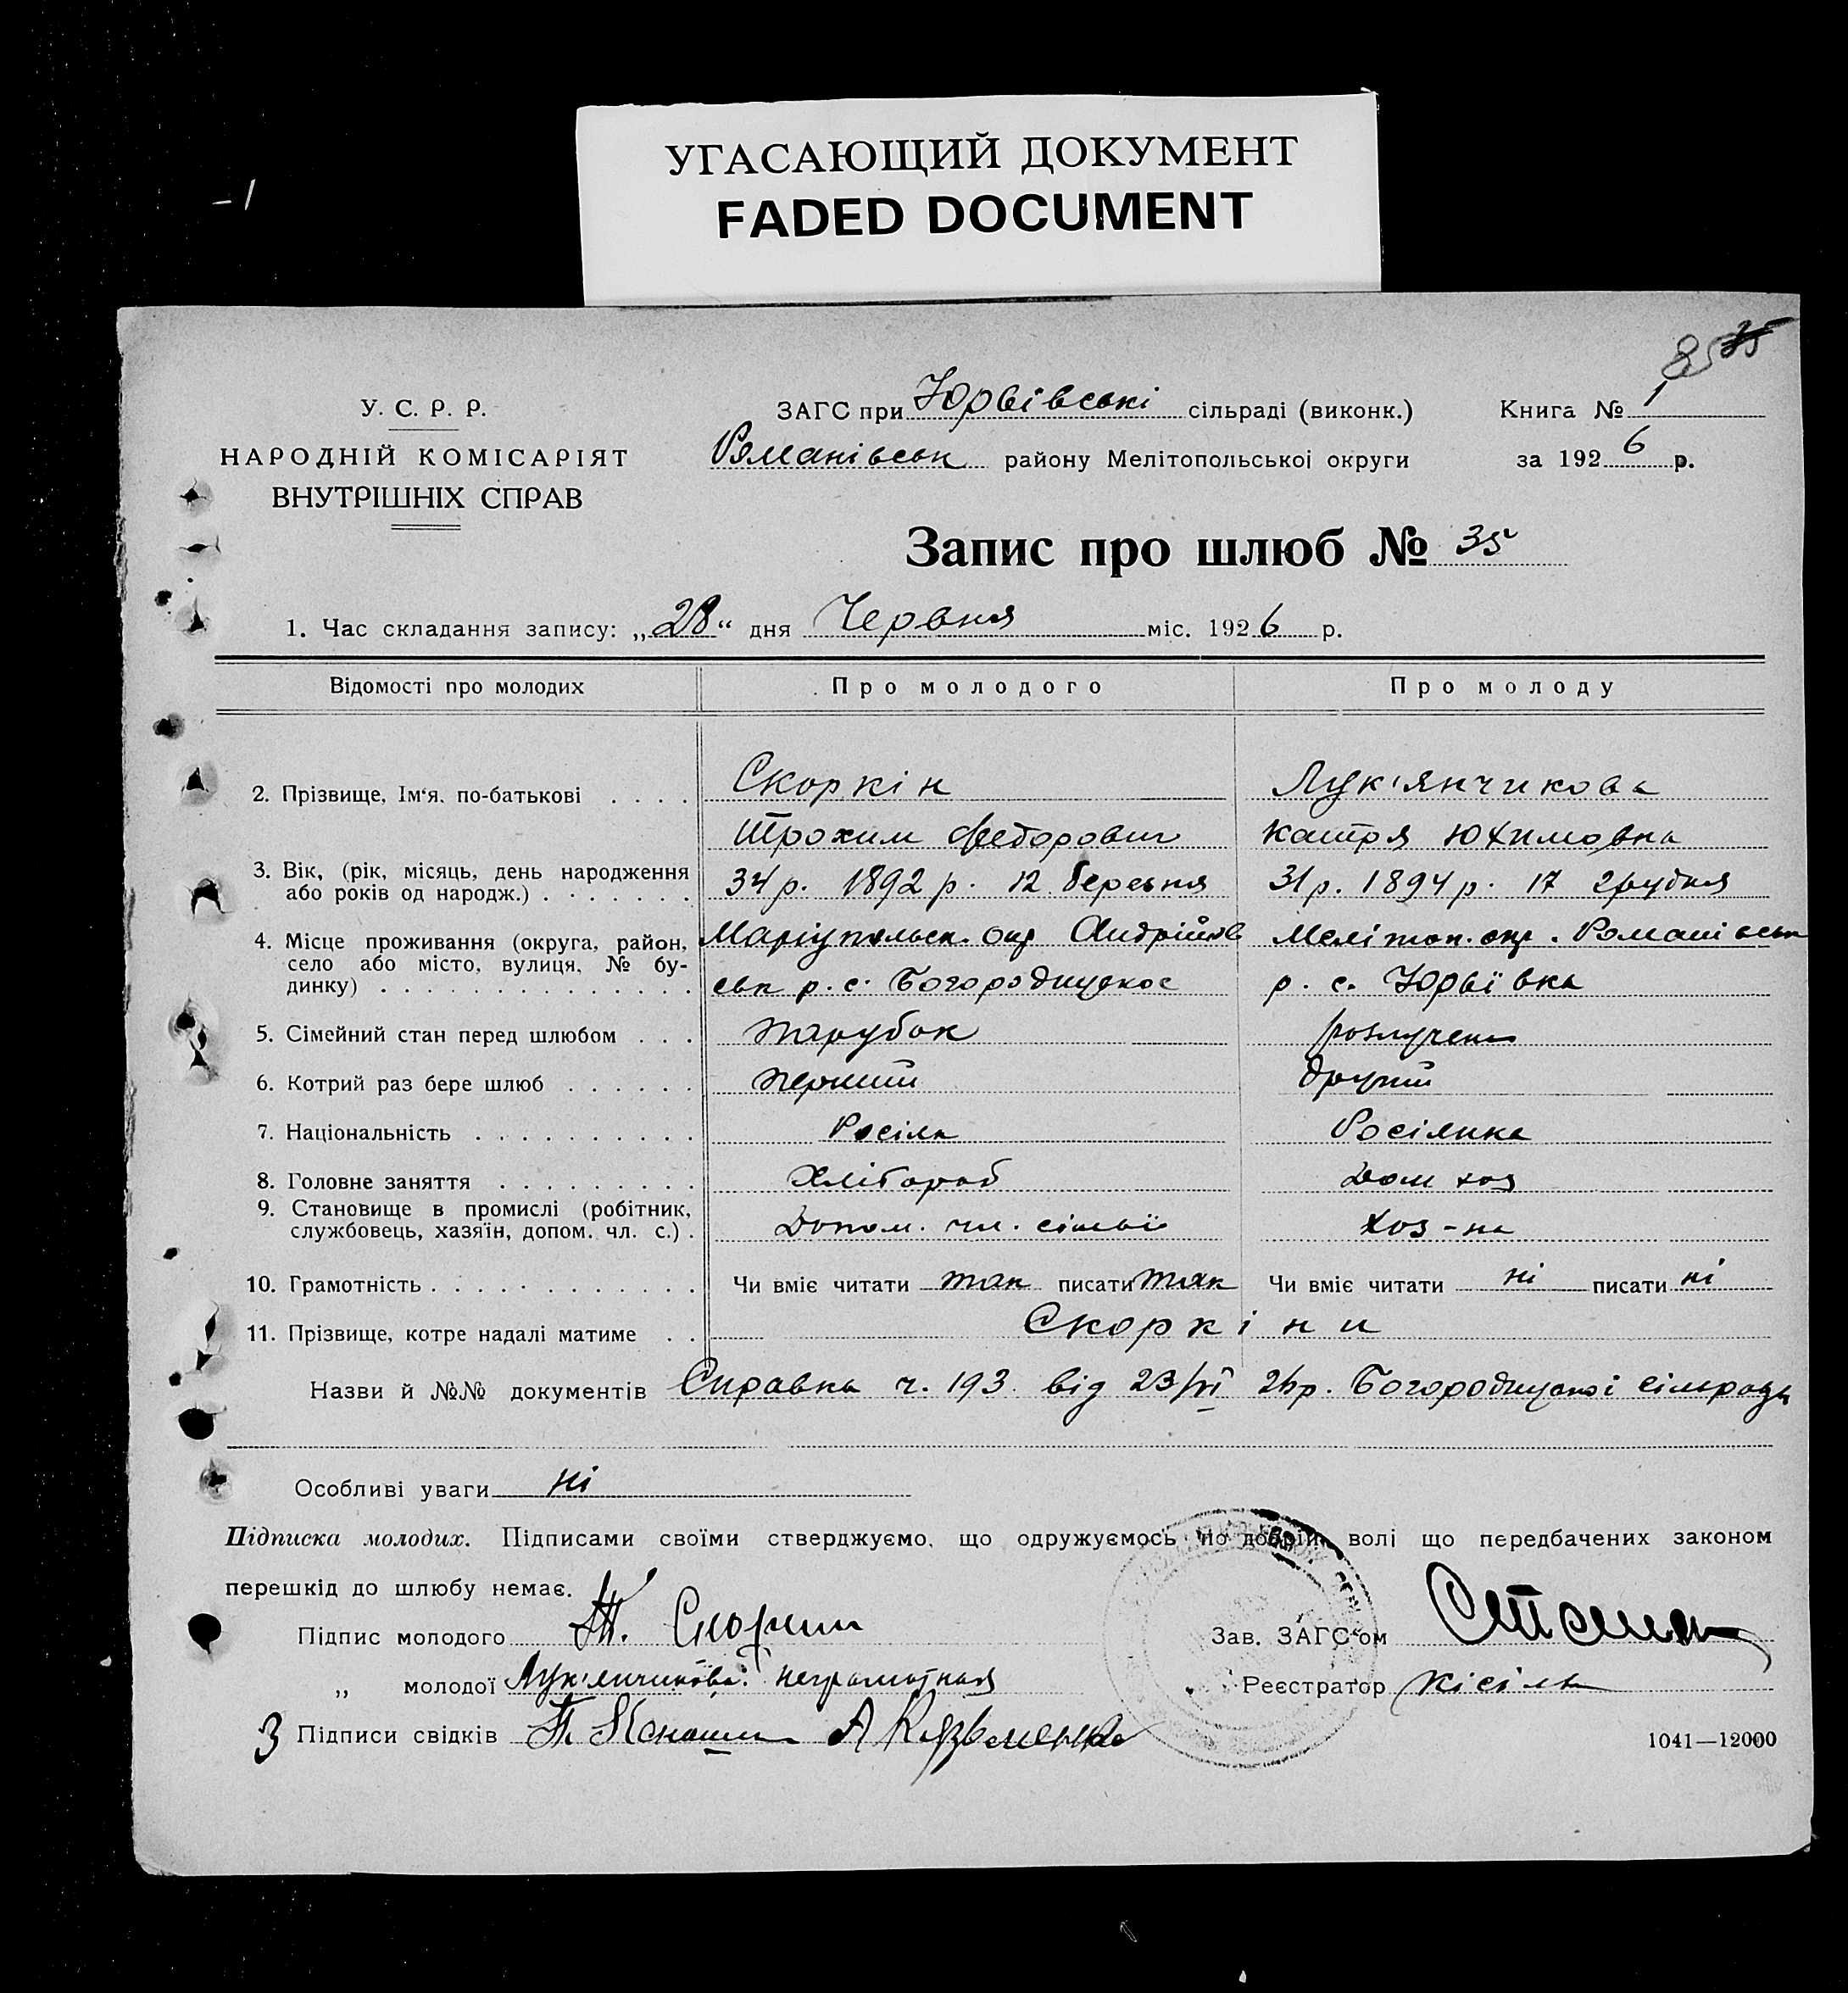 УГАСАЮЩИЙ ДОКУМЕНТ
FADED DOCUMENT
85 35
У. С. Р. Р.
НАРОДНІЙ КОМІСАРІЯТ
ВНУТРІШНІХ СПРАВ
ЗАГС при Юрвівські сільраді (виконк.) Книга № 1
Романівськ району Мелітопольської округи за 1926 р.
Запис про шлюб № 35
1. Час складання запису: „28“ дня Червня міс. 1926 р.
Відомості про молодих Про молодого Про молоду
2. Прізвище, Ім‘я, по-батькові . . . . Скоркін Лук'янчикова
Трохим Федорович Катря Юхимовна
3. Вік, (рік, місяць, день народження або років од народж.) . . . . . . . 34 р. 1892 р. 12 березня 31 р. 1894 р. 17 грудня
4. Місце проживання (округа, район, Маріупольск. окр Андрійов Меліток. окр. Романівськ
село або місто, вулиця, № будинку) . . . . . . . . . . . . . . ськ р. с. Богородицкое р. с. Юрвївка
5. Сімейний стан перед шлюбом . . . парубок розлучена
6. Котрий раз бере шлюб . . . . . . перший другий
7. Національність . . . . . . . . . . Росіян Росіянка
8. Головне заняття . . . . . . . . . Хлібороб Дом хоз
9. Становище в промислі (робітник, службовець, хазяїн, допом. чл. с.) . Допом. чл. сімьї хоз-ка
10. Грамотність . . . . . . . . . . . . Чи вміє читати так писати так Чи вміє читати ні писати ні
11. Прізвище, котре надалі матиме . . Скоркіни
Назви й №№ документів Справка ч. 193 від 23/VI 26 р. Богородицкої сільради
Особливі уваги ні
Підписка молодих. Підписами своїми стверджуємо, що одружуємось по добрій волі що передбачених законом
перешкід до шлюбу немає.
Підпис молодого Т. Скоркин Зав. ЗАГС‘ом
„ молодої Лук'янчикова неграмотная Реєстратор Кісіль
3 Підписи свідків
1041—12000